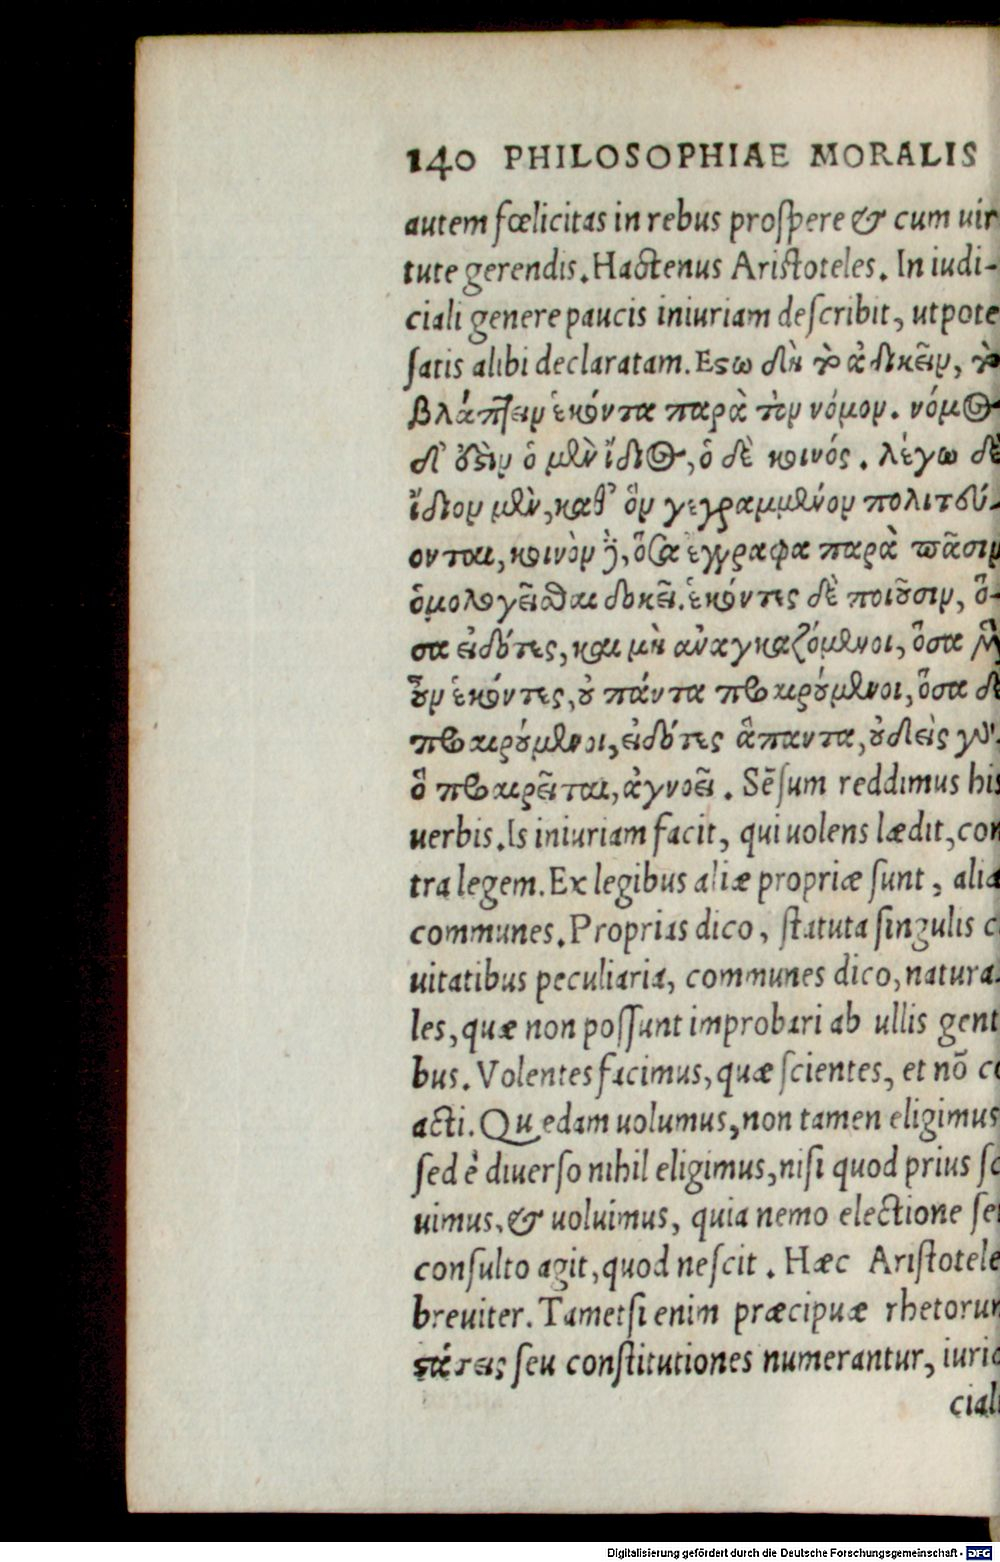 140 PHILOSOPHIAE MORALIS
autem fœlicitas in rebus proſpere & cum uir
tute gerendis. Hactenus Ariſtoteles. In iudi-
ciali genere paucis iniuriam deſcribit, utpote
ſatis alibi declaratam. Εϛω δὴ τὸ ἀδικεῖν, τὸ
βλάπτειν ἑκόντα παρὰ τὸν νόμον. νόμος
δ' ὅϛιν ὁ μὲν ἴδιος, ὁ δὲ κοινός. λέγω δὲ
ἴδιον μὲν, καθ' ὃν γεγραμμένον πολιτεύ-
ονται, κοινὸν δὲ, ὅσα ἄγραφα παρὰ πᾶσιν
ὁμολογεῖσθαι δοκεῖ. ἑκόντες δὲ ποιοῦσιν, ὅ-
σα εἰδότες, και μὴ ἀναγκαζόμενοι, ὅσα μὲν
οὖν ἑκόντες, οὐ πάντα προαιρούμενοι, ὅσα δὲ
προαιρούμενοι, εἰδότες ἅπαντα, οὐδεὶς γὰρ
ὃ προαιρεῖται, ἀγνοεῖ. Sēſum reddimus his
uerbis. Is iniuriam facit, qui uolens lædit, con
tra legem. Ex legibus aliæ propriæ ſunt, alia
communes. Proprias dico, ſtatuta ſingulis c
uitatibus peculiaria, communes dico, natura-
les, quæ non poſſunt improbari ab ullis gent
bus. Volentes facimus, quæ ſcientes, et nō co
acti. Quedam uolumus, non tamen eligimus
ſed è diuerſo nihil eligimus, niſi quod prius ſc
uimus, & uoluimus, quia nemo electione ſeu
conſulto agit, quod neſcit. Hæc Ariſtotele
breuiter. Tametſi enim præcipuæ rhetorum
ϛάσεις ſeu conſtitutiones numerantur, iuric
ciali
Digitalisierung gefördert durch die Deutsche Forschungsgemeinschaft - DFG